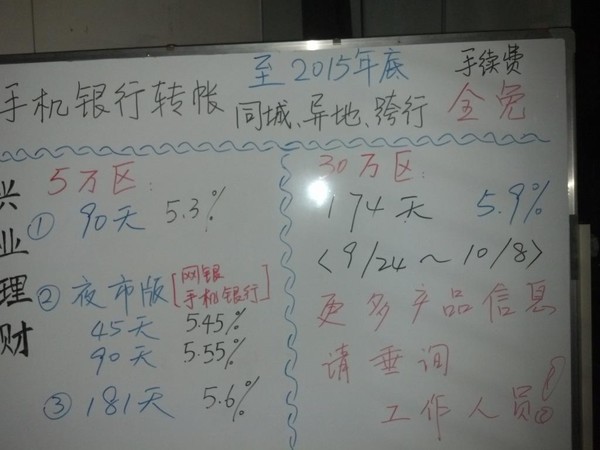 手机银行转帐 至2015年底 手续费
同城、异地、跨行 全免
兴业理财
5万区:
① 90天 5.3%
② 夜市版 [网银
手机银行]
45天 5.45%
90天 5.55%
③ 181天 5.6%
30万区:
174天 5.9%
<9/24~10/8>
更多产品信息
请垂询
工作人员!